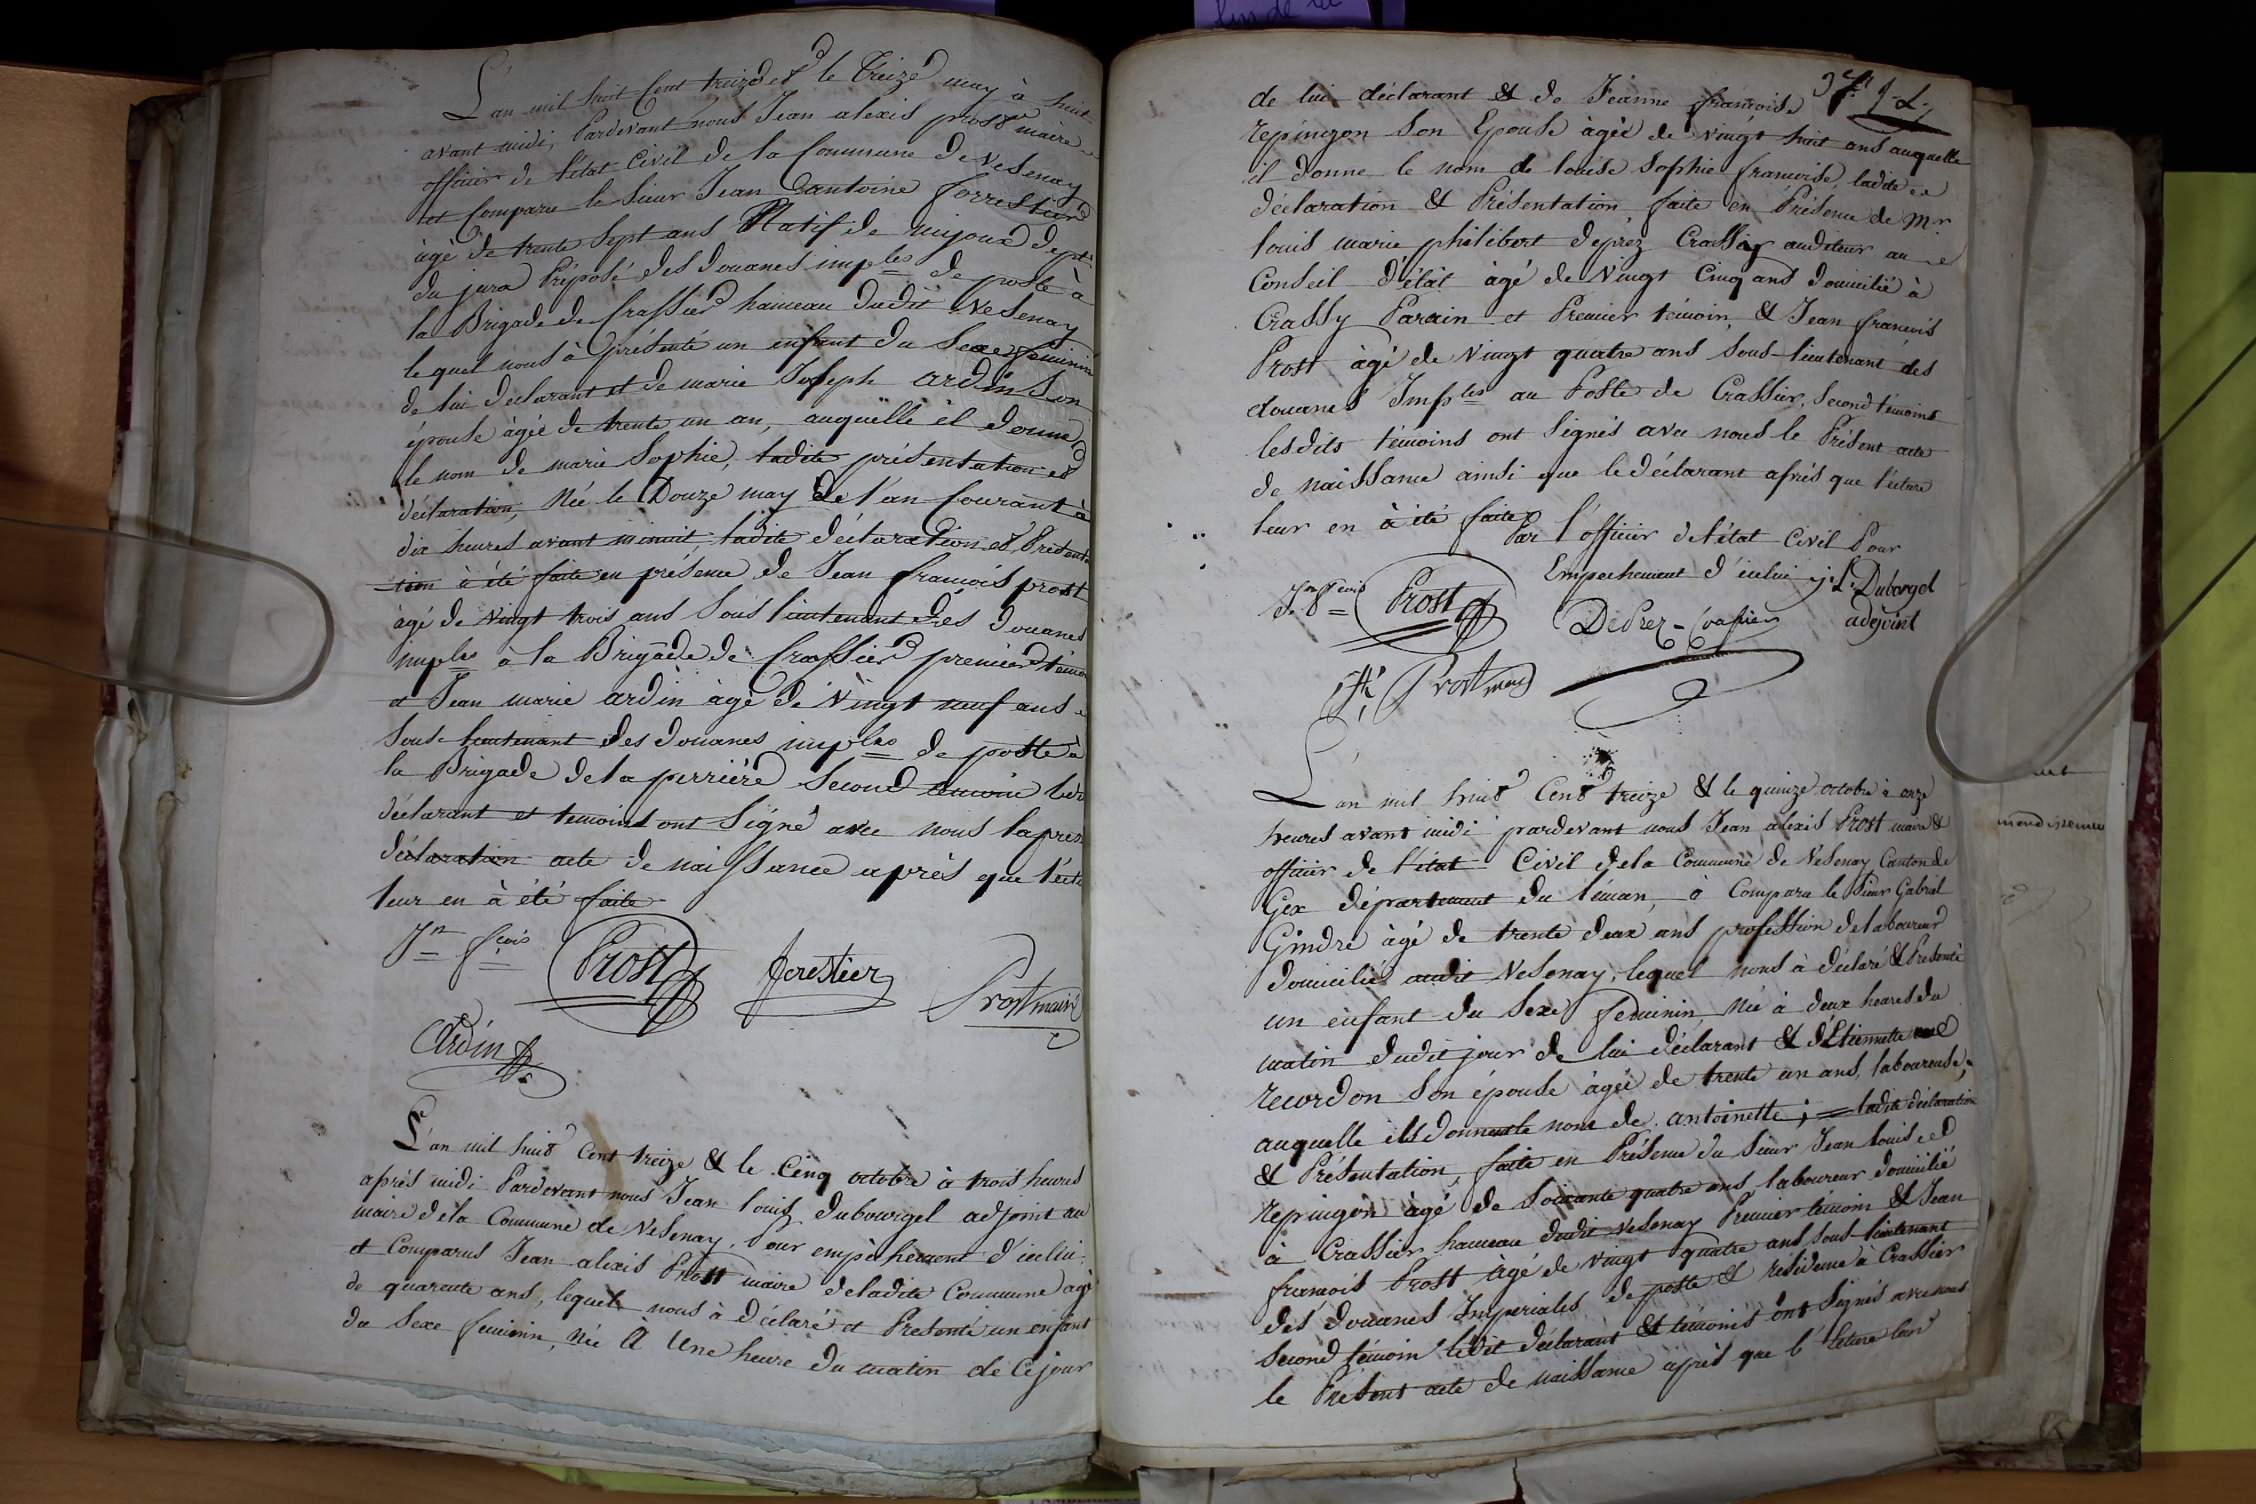 L'an mil huit Cent treize et le treize may à huit
avant midi, Pardevant nous Jean alexis prost maire
officier de l'état Civil de la Commune de Vesenay
et Comparu le Sieur Jean antoine forrestier
àgé de trente Sept ans Natif de mijoux dept
du jura Préposé des douanes imples de poste à
la Brigade de Crassier hameau dudit Vesenay
le quel nous à présenté un enfant du Sexe féminin
de lui déclarant et de marie Joseph ardin Son
épouse àgée de trente un an, auquelle il donne
le nom de marie Sophie, ladite présentation et
déclaration, Née le Douze may de l'an Courant à
dix heures avant minuit ladite déclaration et Présenta
tion à été faite en présence de Jean francois prost
àgé de Vingt trois ans Sous lieutenant des douanes
imples à la Brigade de Crassier premier témoin
et Jean marie ardin àgé de Vingt neuf ans
Sous-lieutenant des douanes imples de poste à
la Brigade de la perriére Second témoin les
déclarant et temoins ont Signé avec nous la pres
déclaration acte de naissance après que l'ectu
leur en à été faite
Jn fcois Prost forestier Prost maire
Ardin
L'an mil huit Cent treize & le Cinq octobre à trois heures
après midi Pardevant nous Jean louis dubourgel adjoint au
maire dela Commune de Vesenay, Pour empèchement d'icelui
et Comparus Jean alexis Prost maire deladite Commune agé
de quarente ans, lequel nous à déclaré et Presenté un enfant
du Sexe feminin, Née à Une heure du matin de Ce jour
de lui déclarant & de Jeanne françoise
repingon Son Epouse àgée de Vingt huit ans auquelle
il donne le nom de louise Sophie francoise, ladite
déclaration & Présentation faite en Présence de Mr
louis marie philibert deprez Crassier auditeur au
Conseil d'état àgé de Vingt Cinq ans domicilié à
Crassy Parain et Premier témoin, & Jean francois
Prost àgé de Vingt quatre ans Sous-lieutenant des
douanes Imples au Poste de Crassier, Second témoins
lesdits témoins ont Signés avec nous le Présent acte
de naissance ainsi que le déclarant après que l'ecture
leur en à été faite Par l'officier de l'état Civil Pour
Empechement d'icelui j. L. Duborgel
adejoint
Jn fcois Prost DePrez-Crassier
Prost maire
L'an mil huit Cent treize & le quinze octobre à onze
heures avant midi pardevant nous Jean alexis Prost maire &
officier de l'état Civil dela Commune de Vesenay Canton de
Gex département du léman, à Comparu le Sieur Gabriel
Gindre àgé de trente deux ans profession de laboureur
domicilié audit Vesenay, lequel nous à déclaré & Présenté
un enfant du Sexe feminin, Née à deux heures du
matin dudit jour de lui déclarant & d'Etiennette
recordon Son épouse àgée de trente un ans, laboureuse,
auquelle ils donne le nom de antoinette; = ladite déclaration
& Présentation, faite en Présence du Sieur Jean louis
repingon àgé de Soixante quatre ans laboureur domicilié
à Crassier hameau dudit Vesenay Premier témoin & Jean
françois Prost àgé de Vingt quatre ans Sous-lieutenant
des douanes Imperiales de poste & résidence à Crassier
Second témoin ledit déclarant & témoins ont Signés avec nous
le Présent acte de naissance après que l'lecture leur